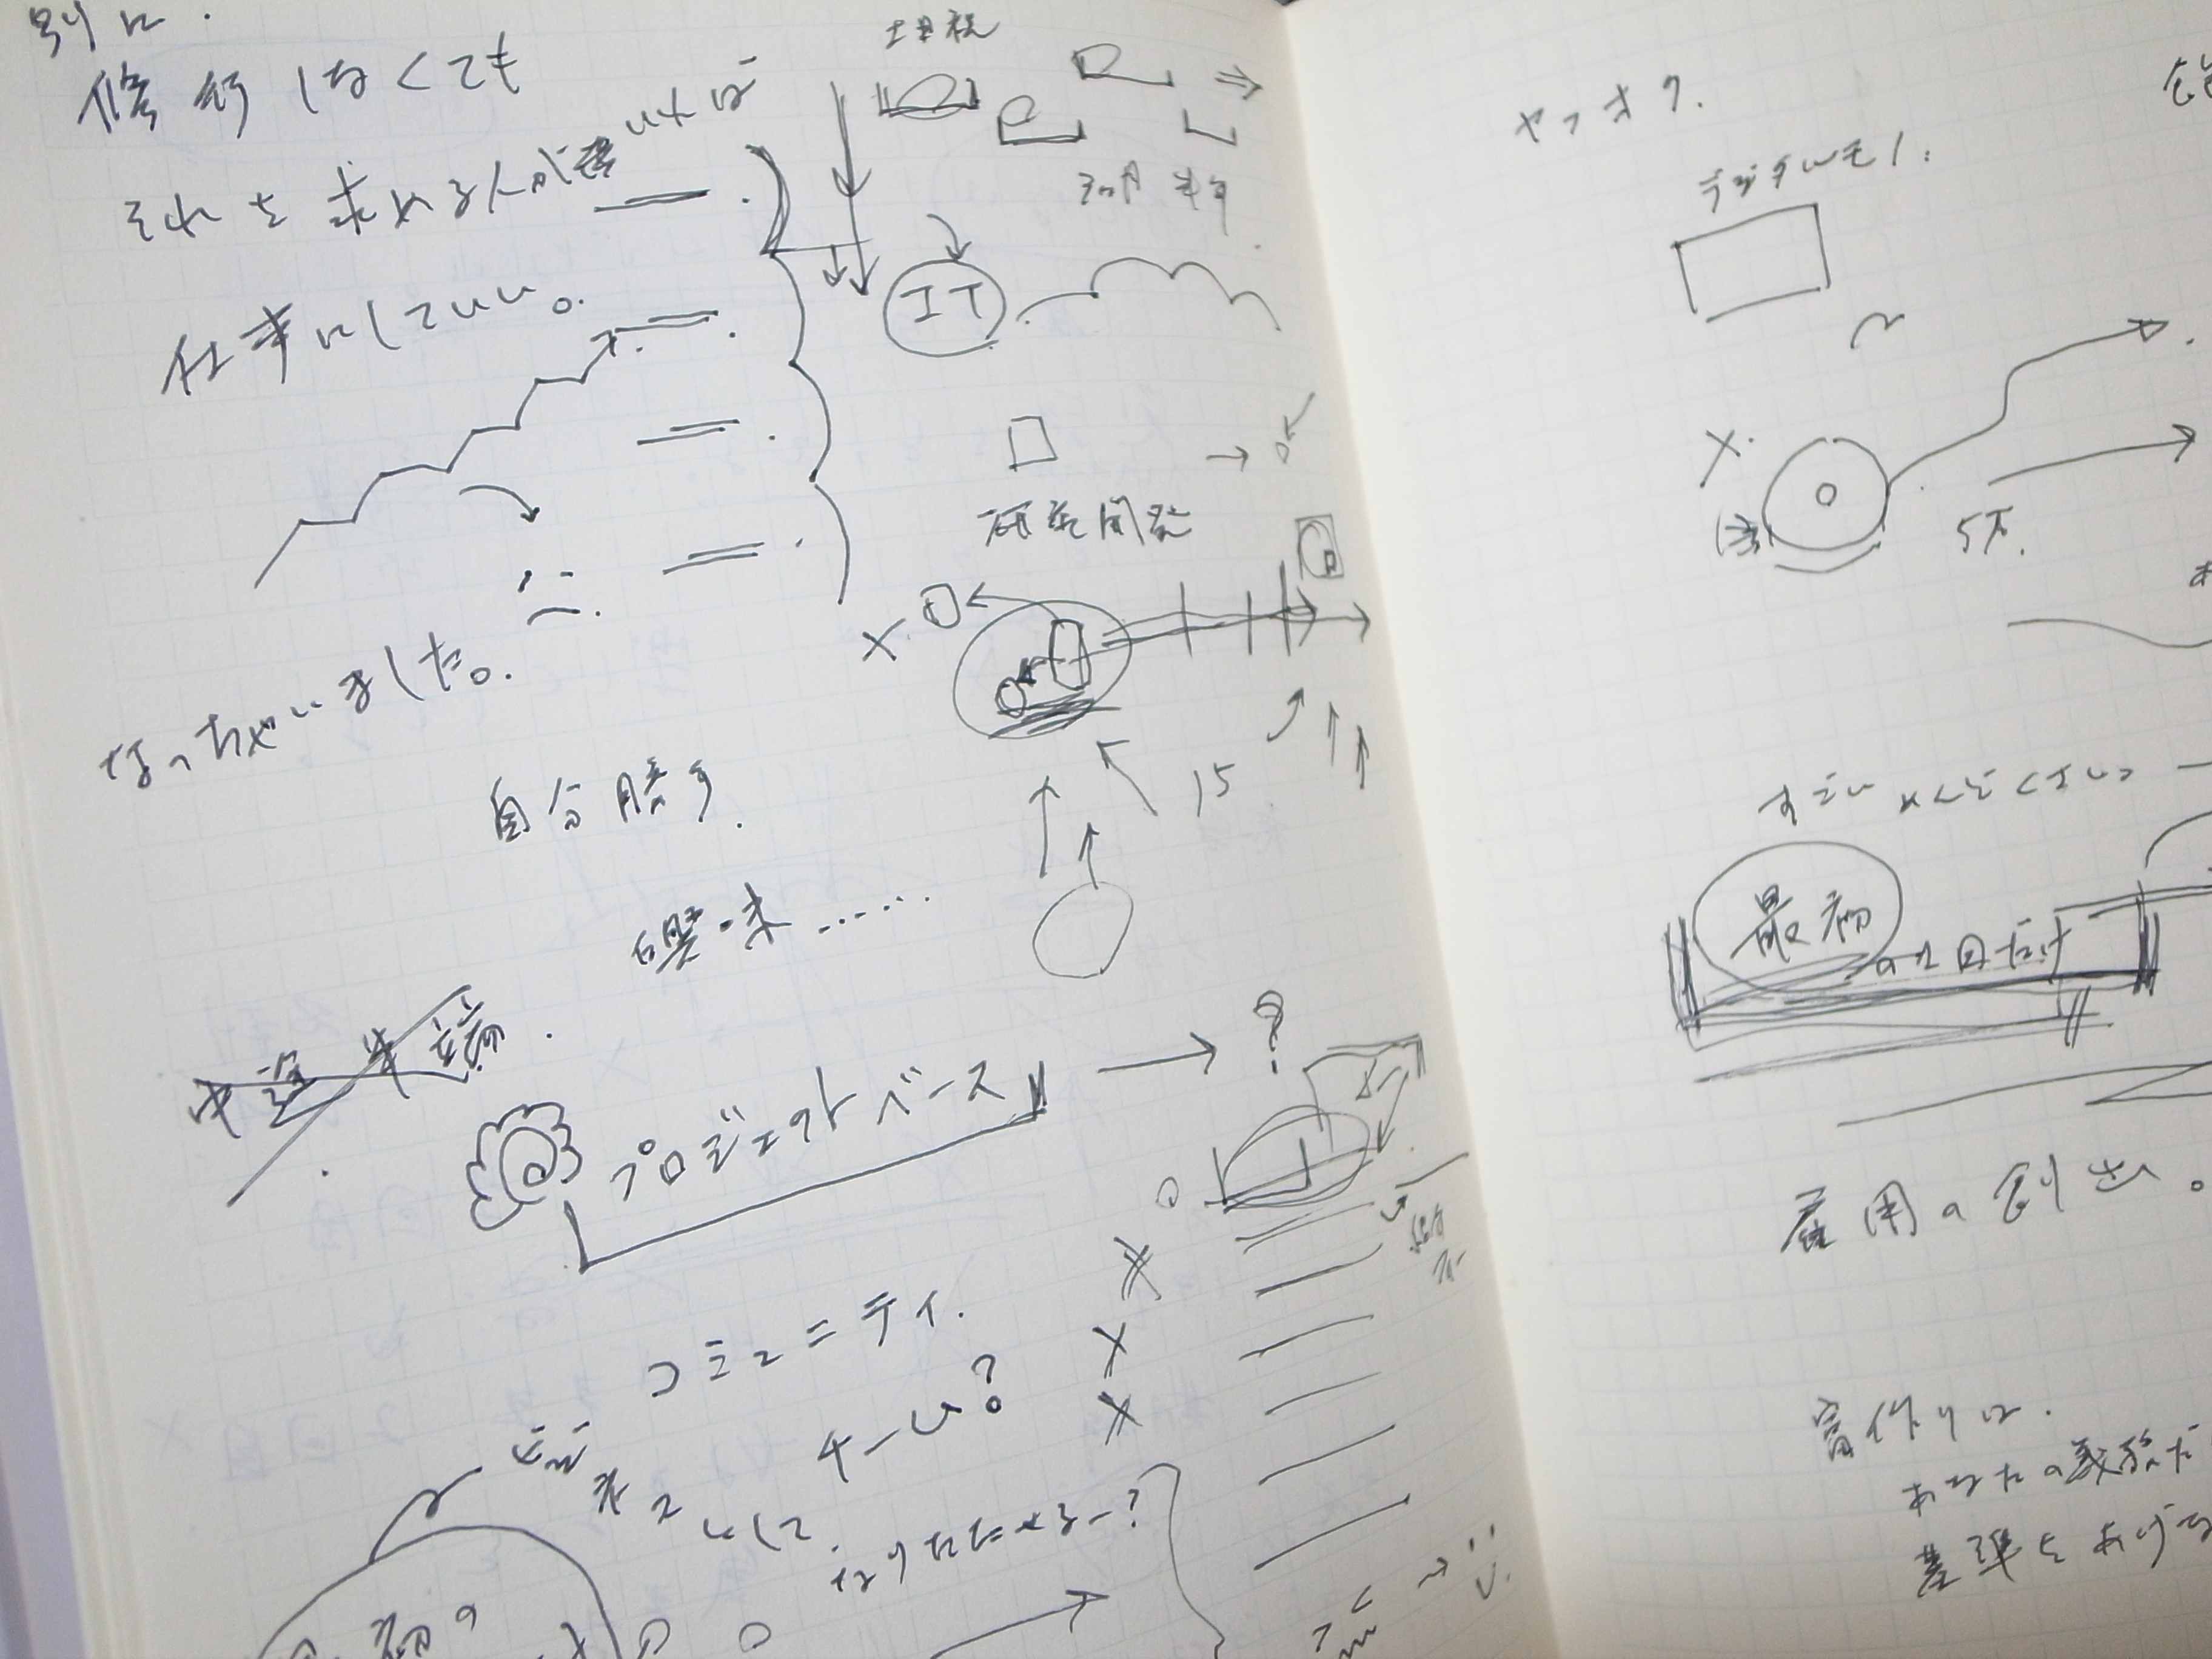 別に.
修行しなくても
それを求める人が居れば
仕事にしていい。
なっちゃいました。
自分勝手.
曖昧……
中途半端.
プロジェクトベース
→ ?
コミュニティ.
チーム?
ビジネスとして.
なりたたせるー?
初の
埋税
3ヵ月 半年
IT
研究開発
15
ヤフオク.
デジタルモノ.
5万.
すごいめんどくさい
最初の1回だけ
雇用の創出。
富作りは.
あなたの義務だ
基準をあげる